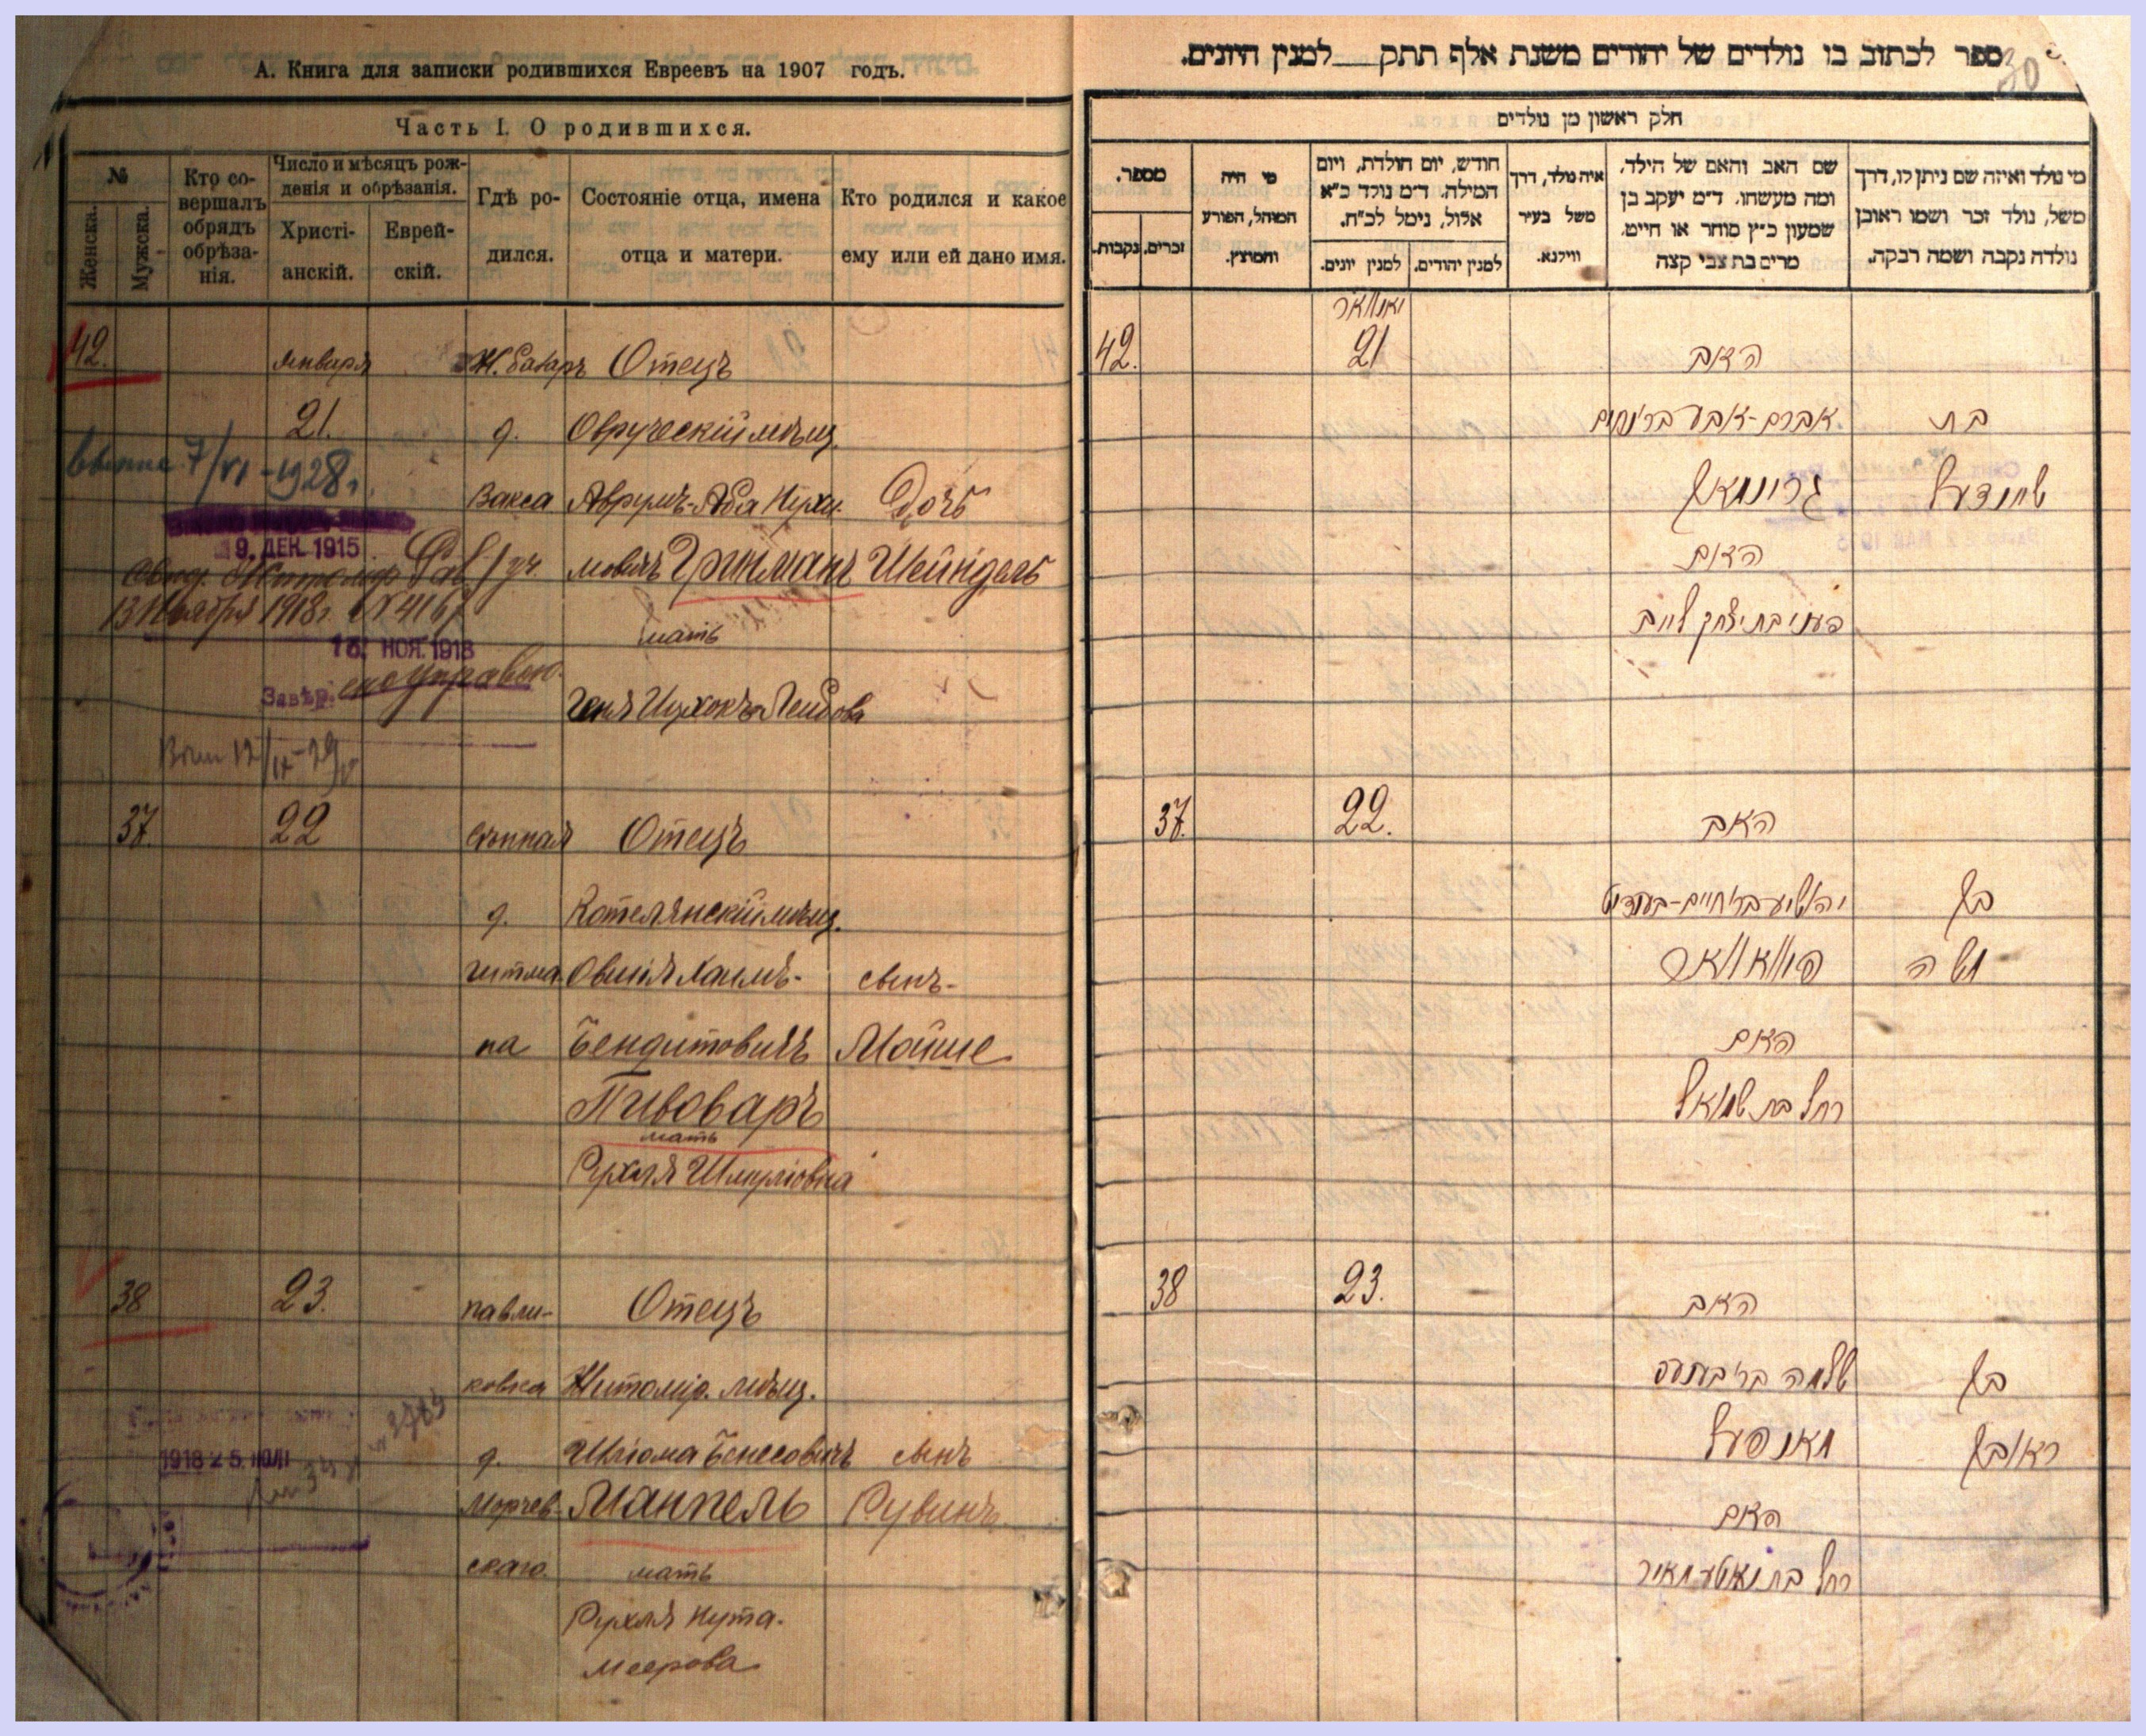 А. Книга для записки родившихся Евреевъ на 1907 годъ.
Часть I. О родившихся.
№
Женска.
Мужска.
Кто совершалъ обрядъ обрѣзанія.
Число и мѣсяцъ рожденія и обрѣзанія.
Христіанскій.
Еврейскій.
Гдѣ родился.
Состояніе отца, имена отца и матери.
Кто родился и какое ему или ей дано имя.
42. Января Ж. базаръ Отецъ
21. д. Овручскій мѣщ.
7/VI-1928г.
Вакса Аврумъ-Аба Нухи- Дочь
9. ДЕК. 1915
мовичъ Гринманъ Шейндель
13 Ноября 1918г. № 4167
мать
НОЯ. 1918
Завѣр.
Геня Ицхокъ-Лейбова
37. 22 Сѣнная Отецъ
д. Котелянскій мѣщ.
Гитма- Овшія Хаимъ- сынъ-
на Бендитовичъ Мойше
Пивоваръ
мать
Рухля Шмулiовна
38 23. павли- Отецъ
ковка Житомiр. мѣщ.
д. Шліома Бенесовичъ сынъ
Морчев- Манпель Рувинъ
скаго. мать
Рухля Нута-
Меерова
ספר לכתוב בו נולדים של יהודים משנת אלף תתק__למנין היונים.
30
חלק ראשון מן נולדים
מי נולד ואיזה שם ניתן לו, דרך משל, נולד זכר ושמו ראובן נולדה נקבה ושמה רבקה.
שם האב והאם של הילד, ומה מעשהו, ד״מ יעקב בן שמעון כ״ץ סוחר או חייט, מרים בת צבי קצה
איה נולד, דרך משל בעיר ווילנא.
חודש, יום הולדת, ויום המילה. ד״מ נולד כ״א אלול, נימל לכ״ח.
למנין יהודים.
למנין יונים.
מי היה המוהל, הפורע והמוצץ.
מספר.
זכרים.
נקבות.
יאנוואר
42. 21 האב
בת אברם-אבא בר נחום
שיינדעל גרינמאן
האם
העניא בת יצחק לייב
37. 22. האב
בן יהושיע בר חיים-בענדיט
משה פיוואוואר
האם
רחל בת שמואל
38 23. האב
בן שלמה בר בענעס
ראובן מאנפעל
האם
רחל בת נאטע מאיר